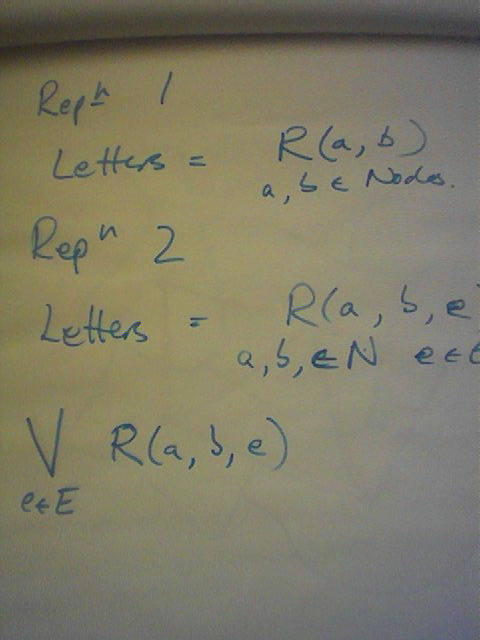 Repⁿ 1
Letters = R(a, b)
a, b ∈ Nodes.
Repⁿ 2
Letters = R(a, b, e
a, b, ∈ N e ∈ E
V R(a, b, e)
e ∈ E